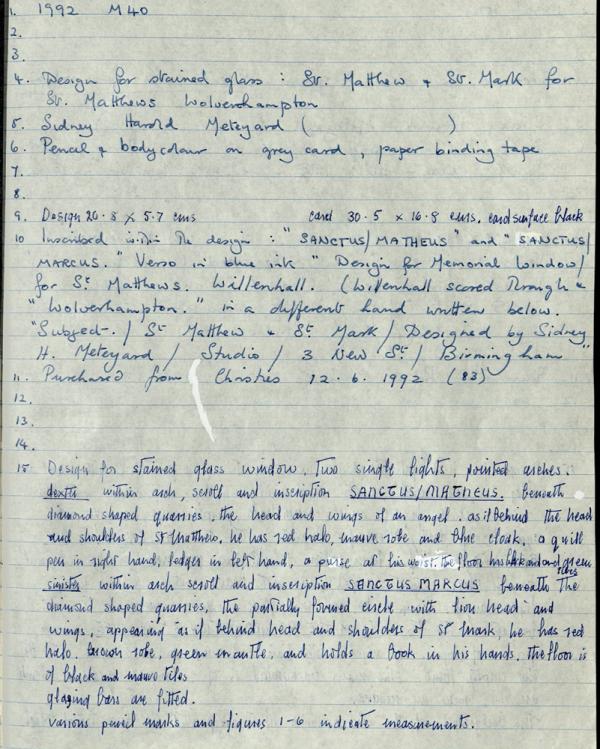 1. 1992 M40
2.
3.
4. Design for stained glass : St. Matthew & St. Mark for
St. Matthews Wolverhampton
5. Sidney Harold Meteyard ( )
6. Pencil & bodycolour on grey card, paper binding tape
7.
8.
9. Design 20.8 x 5.7 cms card 30.5 x 16.8 cms. card surface black
10 Inscribed within the design : "SANCTUS/MATHEUS" and "SANCTUS/
MARCUS." Verso in blue ink "Design for Memorial Window/
for St Matthews. Willenhall. (Willenhall scored through &
"Wolverhampton." in a different hand written below.
"Subject. / St Matthew & St Mark / Designed by Sidney
H. Meteyard / Studio / 3 New St / Birmingham"
11. Purchased from Christies 12.6.1992 (83)
12.
13.
14.
15 Design for stained glass window, two single lights, pointed arches.
dexter within arch, scroll and inscription SANCTUS/MATHEUS. beneath
diamond shaped quarries, the head and wings of an angel. as if behind the head
and shoulders of St Matthew, he has red halo, mauve robe and blue cloak, a quill
pen in right hand, ledger in left hand, a purse at his waist. the floor has black and green
tiles
sinister within arch scroll and inscription SANCTUS MARCUS beneath the
diamond shaped quarries, the partially formed circle with lion head and
wings, appearing as if behind head and shoulders of St Mark, he has red
halo, brown robe, green mantle, and holds a book in his hands, the floor is
of black and mauve tiles
glazing bars are fitted.
various pencil marks and figures 1-6 indicate measurements.